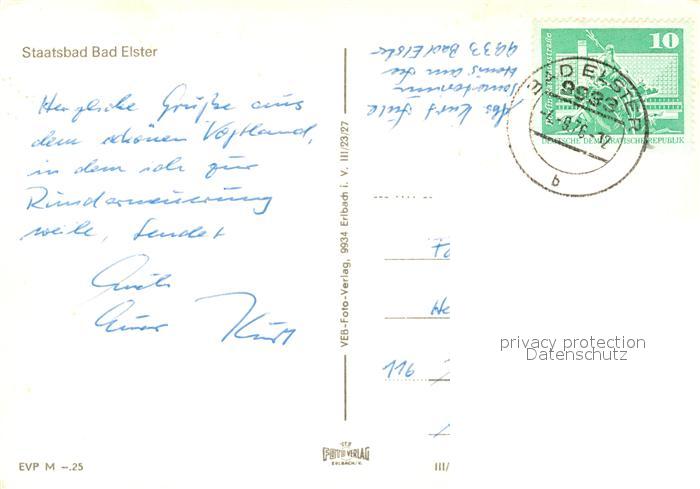 Staatsbad Bad Elster
Herzliche Grüße aus
dem schönen Vogtland,
in dem ich zur
Runderneuerung
weile, sendet
Euch
Euer Kurt
EVP M –.25
VEB-Foto-Verlag, 9934 Erlbach i. V. III/23/27
FOTO VERLAG
ERLBACH/V.
Abs. Kurt
Sanatorium
Haus am See
9933 Bad Elster
10
DEUTSCHE DEMOKRATISCHE REPUBLIK
BAD ELSTER
9933
b
He
116
III/
privacy protection
Datenschutz